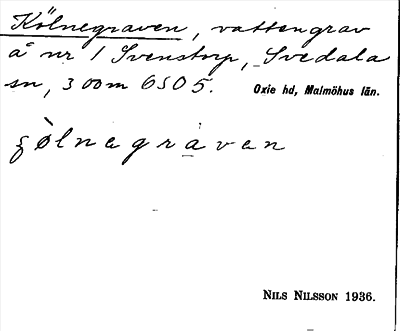 Kölnegraven, vattengrav
å nr 1 Svenstorp, Svedala
sn, 300 m 6505. Oxie hd, Malmöhus län.
ølnegraven
NILS NILSSON 1936.